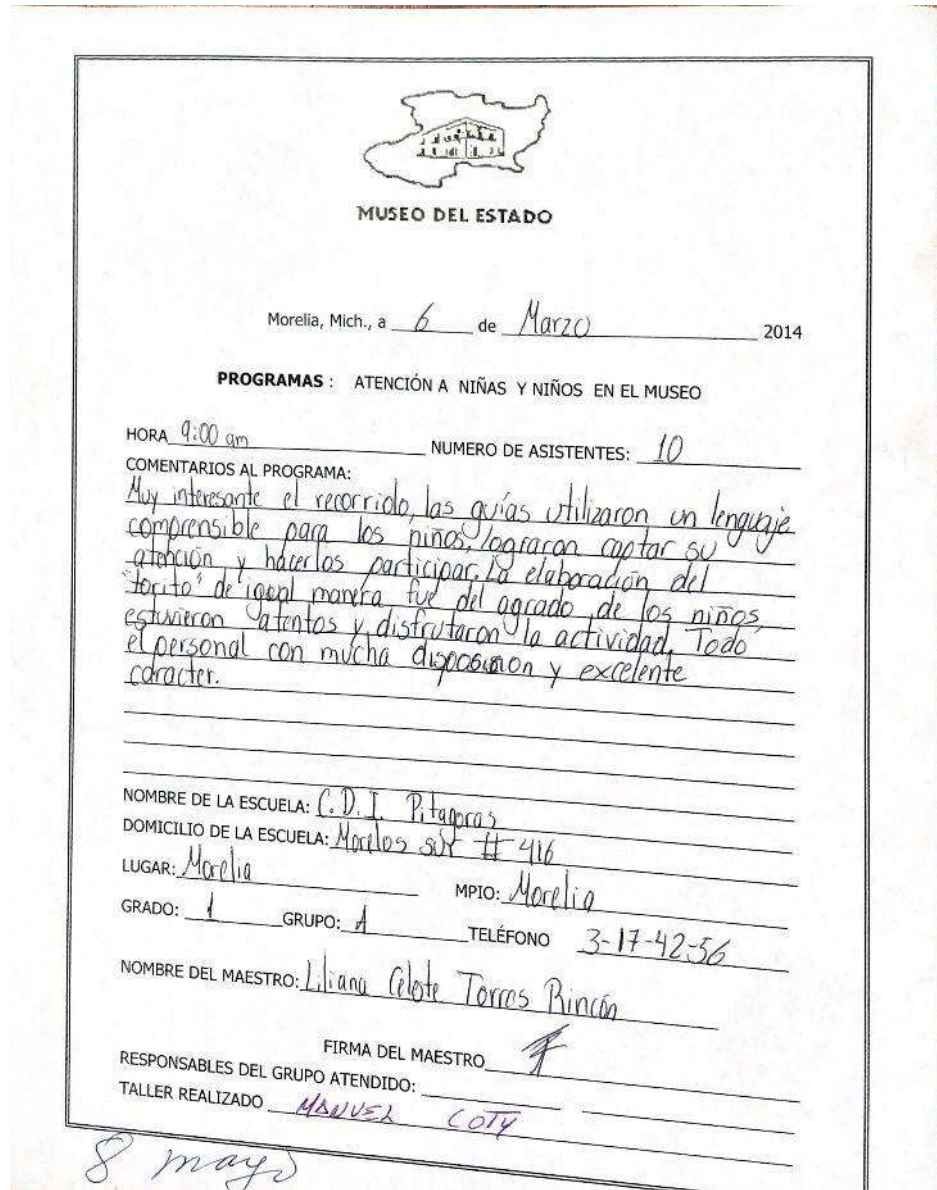 MUSEO DEL ESTADO
Morelia, Mich., a 6 de Marzo 2014
PROGRAMAS : ATENCIÓN A NIÑAS Y NIÑOS EN EL MUSEO
HORA 9:00 am NUMERO DE ASISTENTES: 10
COMENTARIOS AL PROGRAMA:
Muy interesante el recorrido, las guías utilizaron un lenguaje
comprensible para los niños, lograron captar su
atención y hacerlos participar. La elaboración del
"torito" de igual manera fue del agrado de los niños,
estuvieron atentos y disfrutaron la actividad. Todo
el personal con mucha disposición y excelente
caracter.
NOMBRE DE LA ESCUELA: C.D.I. Pitagoras
DOMICILIO DE LA ESCUELA: Morelos sur # 416
LUGAR: Morelia MPIO: Morelia
GRADO: 1 GRUPO: A TELÉFONO 3-17-42-56
NOMBRE DEL MAESTRO: Liliana Celeste Torres Rincón
FIRMA DEL MAESTRO
RESPONSABLES DEL GRUPO ATENDIDO:
TALLER REALIZADO MANUEL COTY
8 mayo